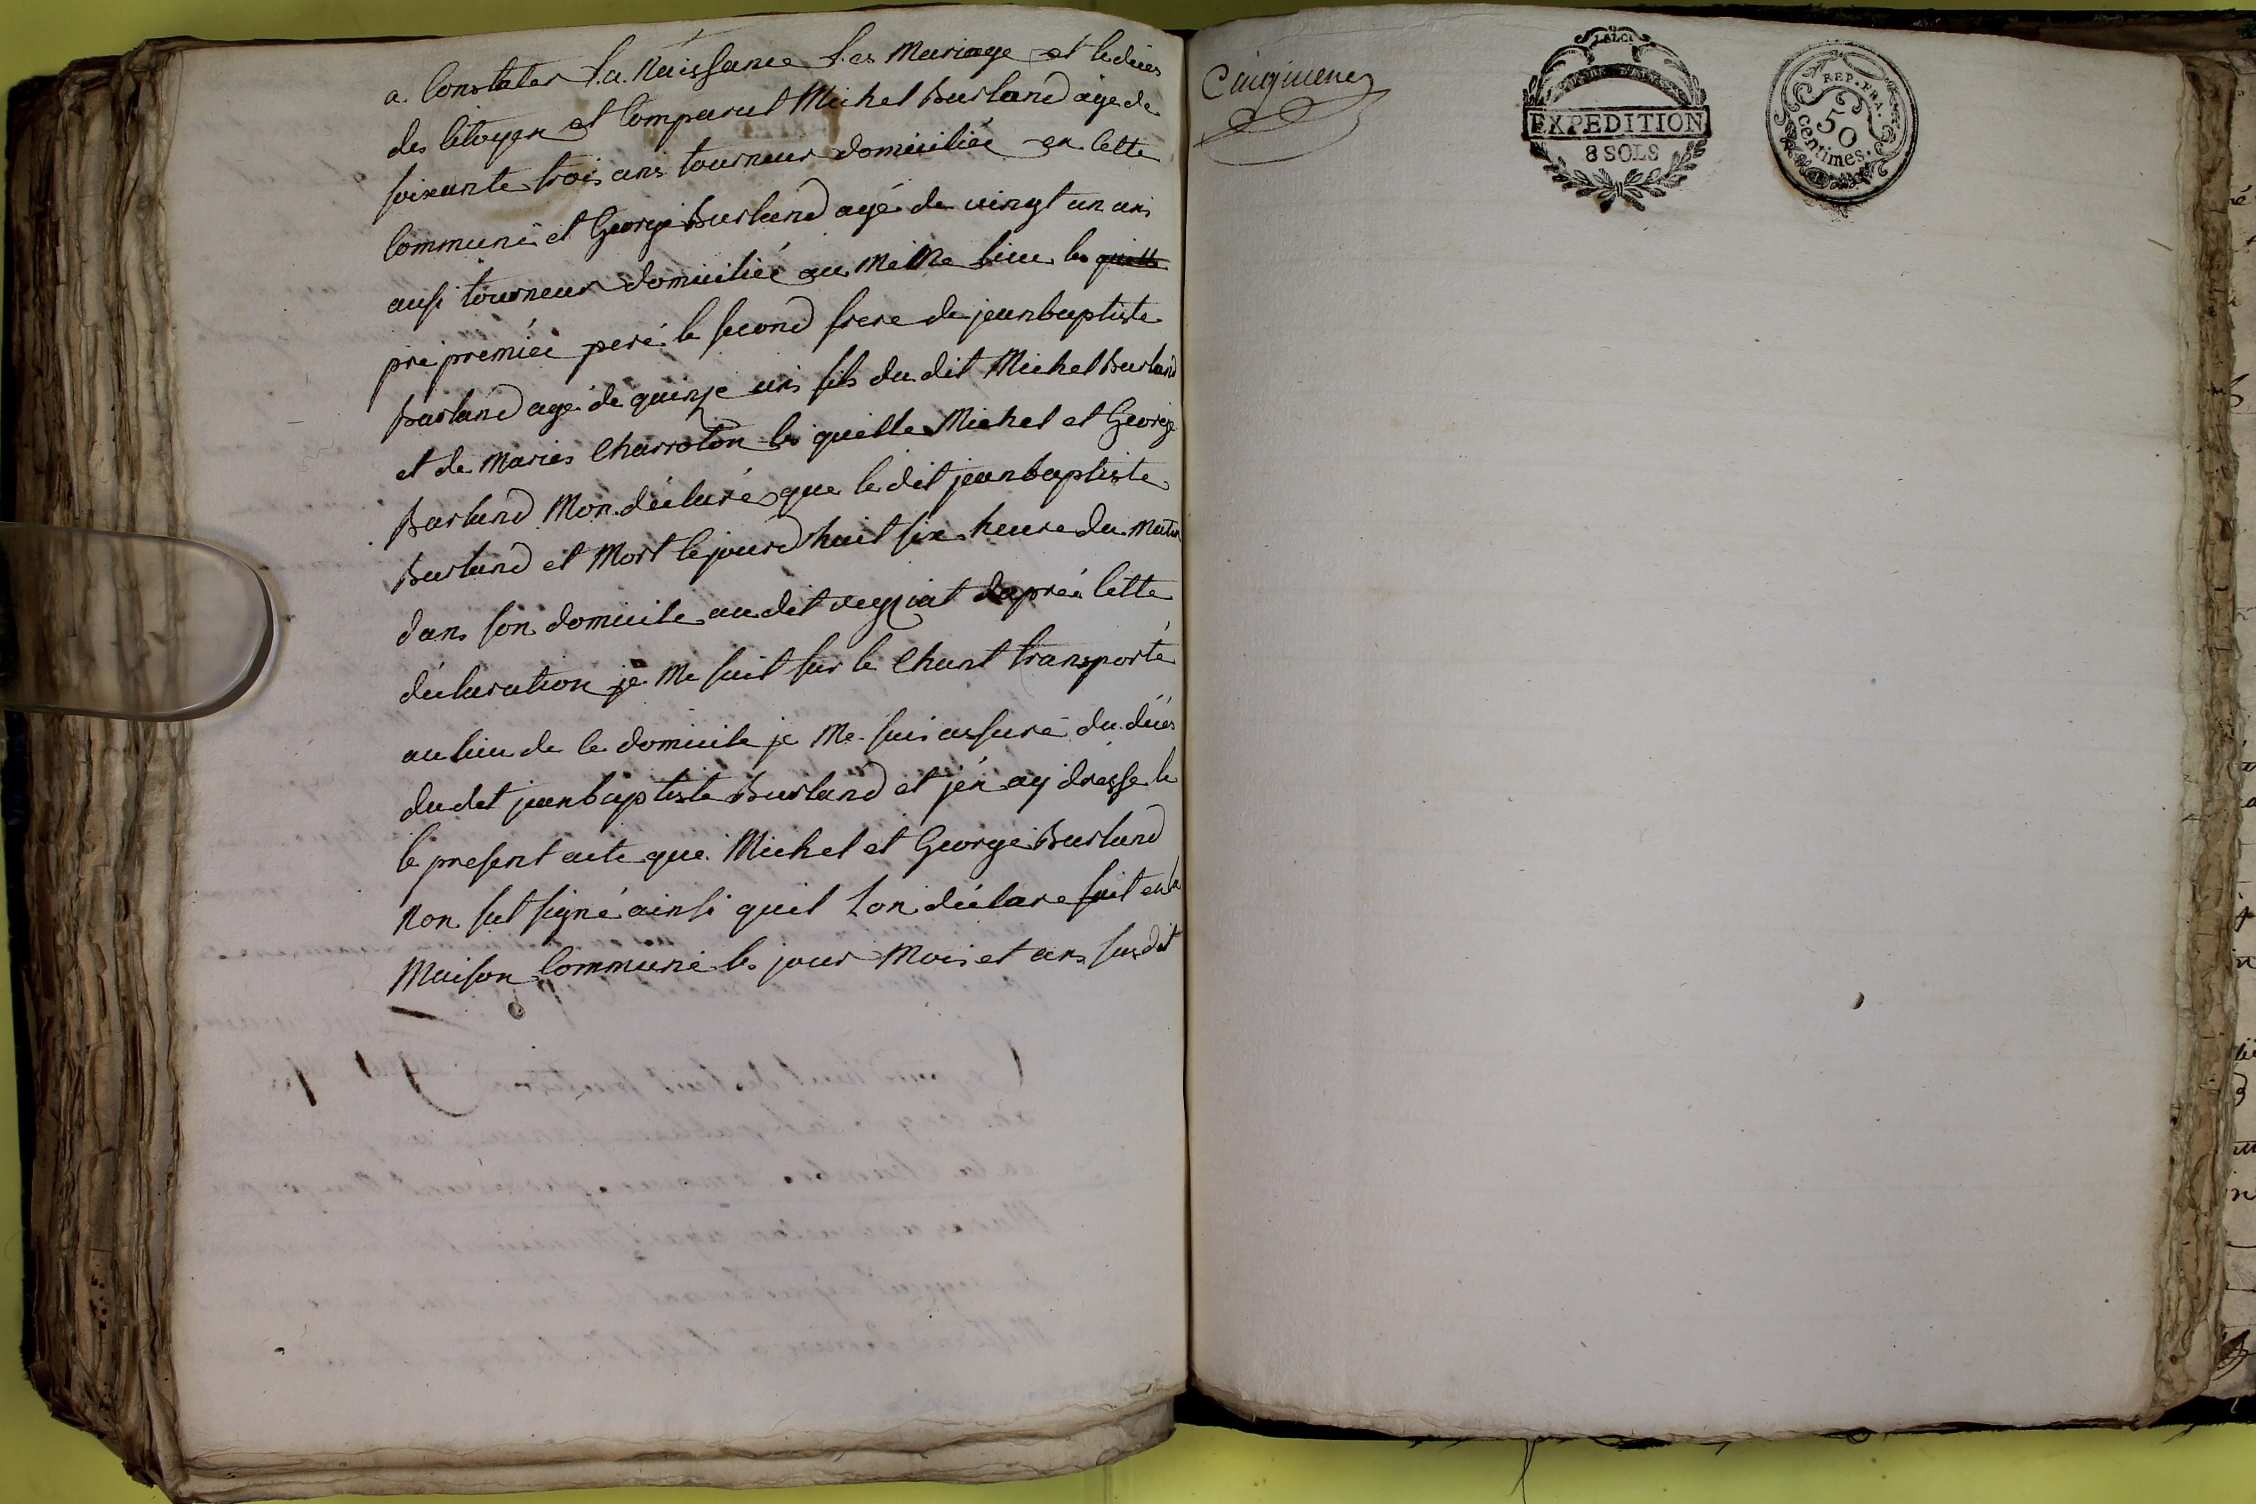 a Constater La Naissance Les Mariage et le décés
des Citoyen et Comparut Michel Barland age de
soixante trois ans tourneur domicilié en Cette
Commune et George Barland agé de vingt un ans
ausi tourneur domicilié au Meme lieu les quelle
pre premiée peré le second frere de jeanbaptiste
Barland age de quinze ans fils du dit Michel Barland
et de Maries Charroton les quelle Michel et George
Barland Mon déclaré que le dit jeanbaptiste
Barland et Mort lejourdhuit six heure du Matin
dans son domicile au dit daprés Cette
déclaration je Me suit sur le Chant transporté
au lieu de le domicile je Me suis assuré du décés
du dit jeanbaptiste Barland et jén ay dresse le
le present acte que Michel et George Barland
Non sut signé ainsi quil Lon déclare fait en la
Maison Commune les jour Mois et ans susdit
EXPEDITION
8 SOLS
REP. FRA.
50
centimes.